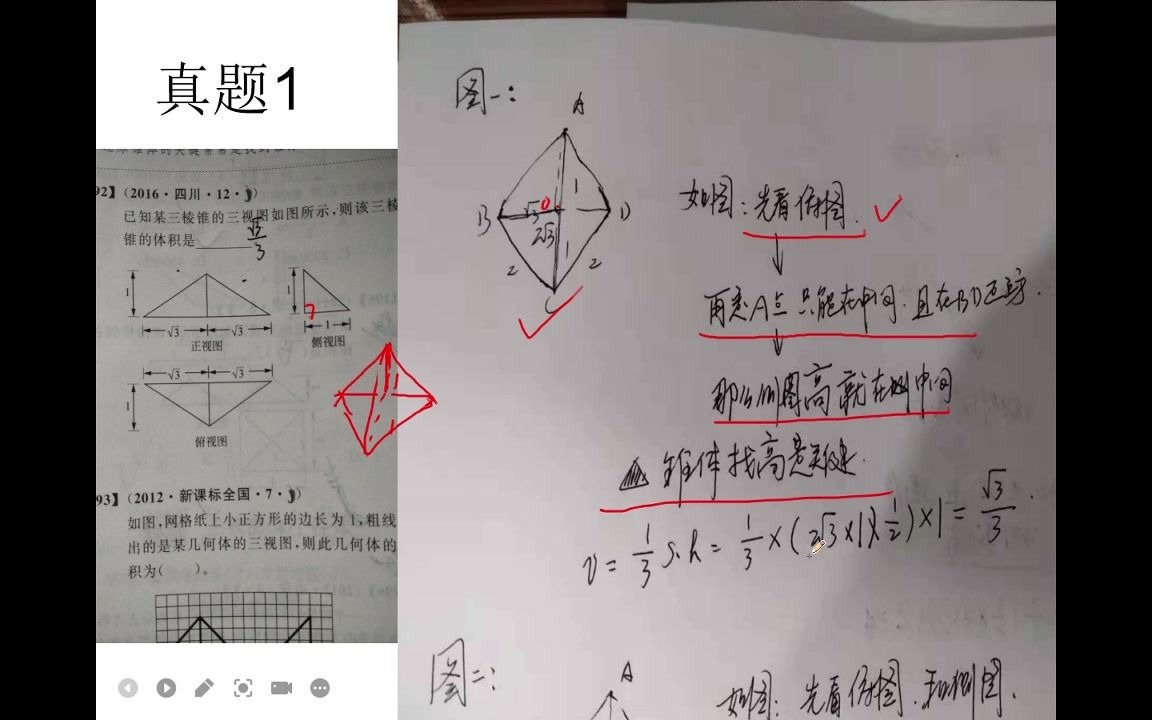 真题1
92】(2016·四川·12·)
已知某三棱锥的三视图如图所示,则该三棱
锥的体积是 √3/3
1
√3 √3
正视图
1
1
侧视图
√3 √3
1
俯视图
93】(2012·新课标全国·7·)
如图,网格纸上小正方形的边长为1,粗线
出的是某几何体的三视图,则此几何体的
积为( )。
图一:
A
1
B √3 O D
2√3
1
2 2
C
如图:先看俯图.
再悉A点只能在中间.且在BD这边.
那么侧图高就在侧中间
锥体找高是关键.
V=1/3 S·h=1/3×(2√3×1×1/2)×1=√3/3.
图二:
A
如图:先看俯图.和侧图.